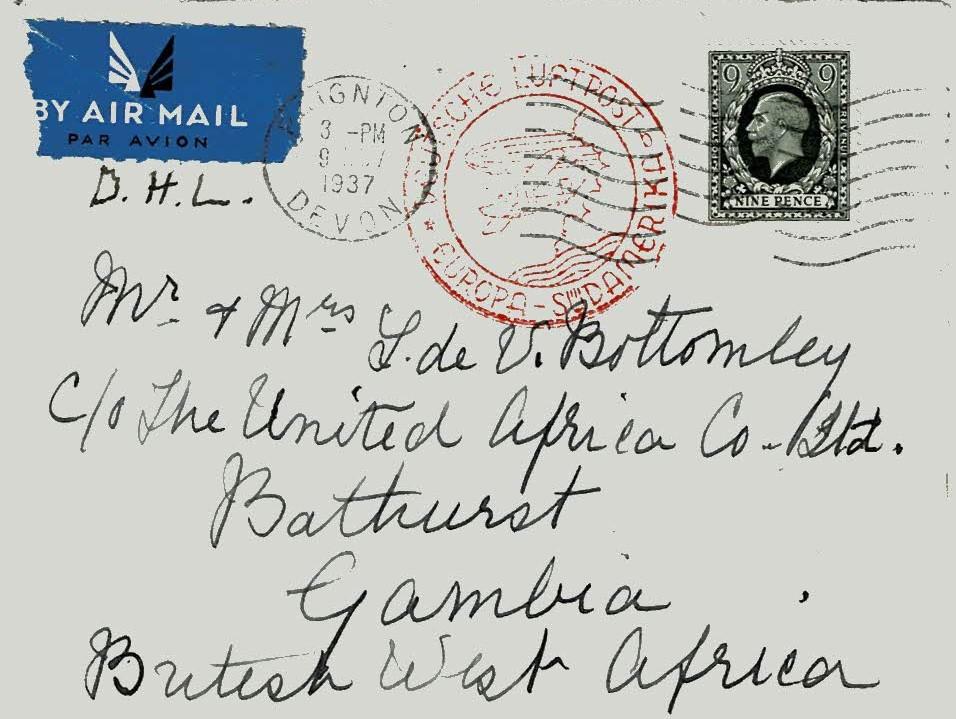 BY AIR MAIL
PAR AVION
D. H. L.
3 -PM
1937
DEVON
LUFTPOST
EUROPA - SÜDAMERIKA
9 9
POSTAGE REVENUE
NINE PENCE
Mr & Mrs L. de V. Bottomley
c/o The United Africa Co. Ltd.
Bathurst
Gambia
British West Africa